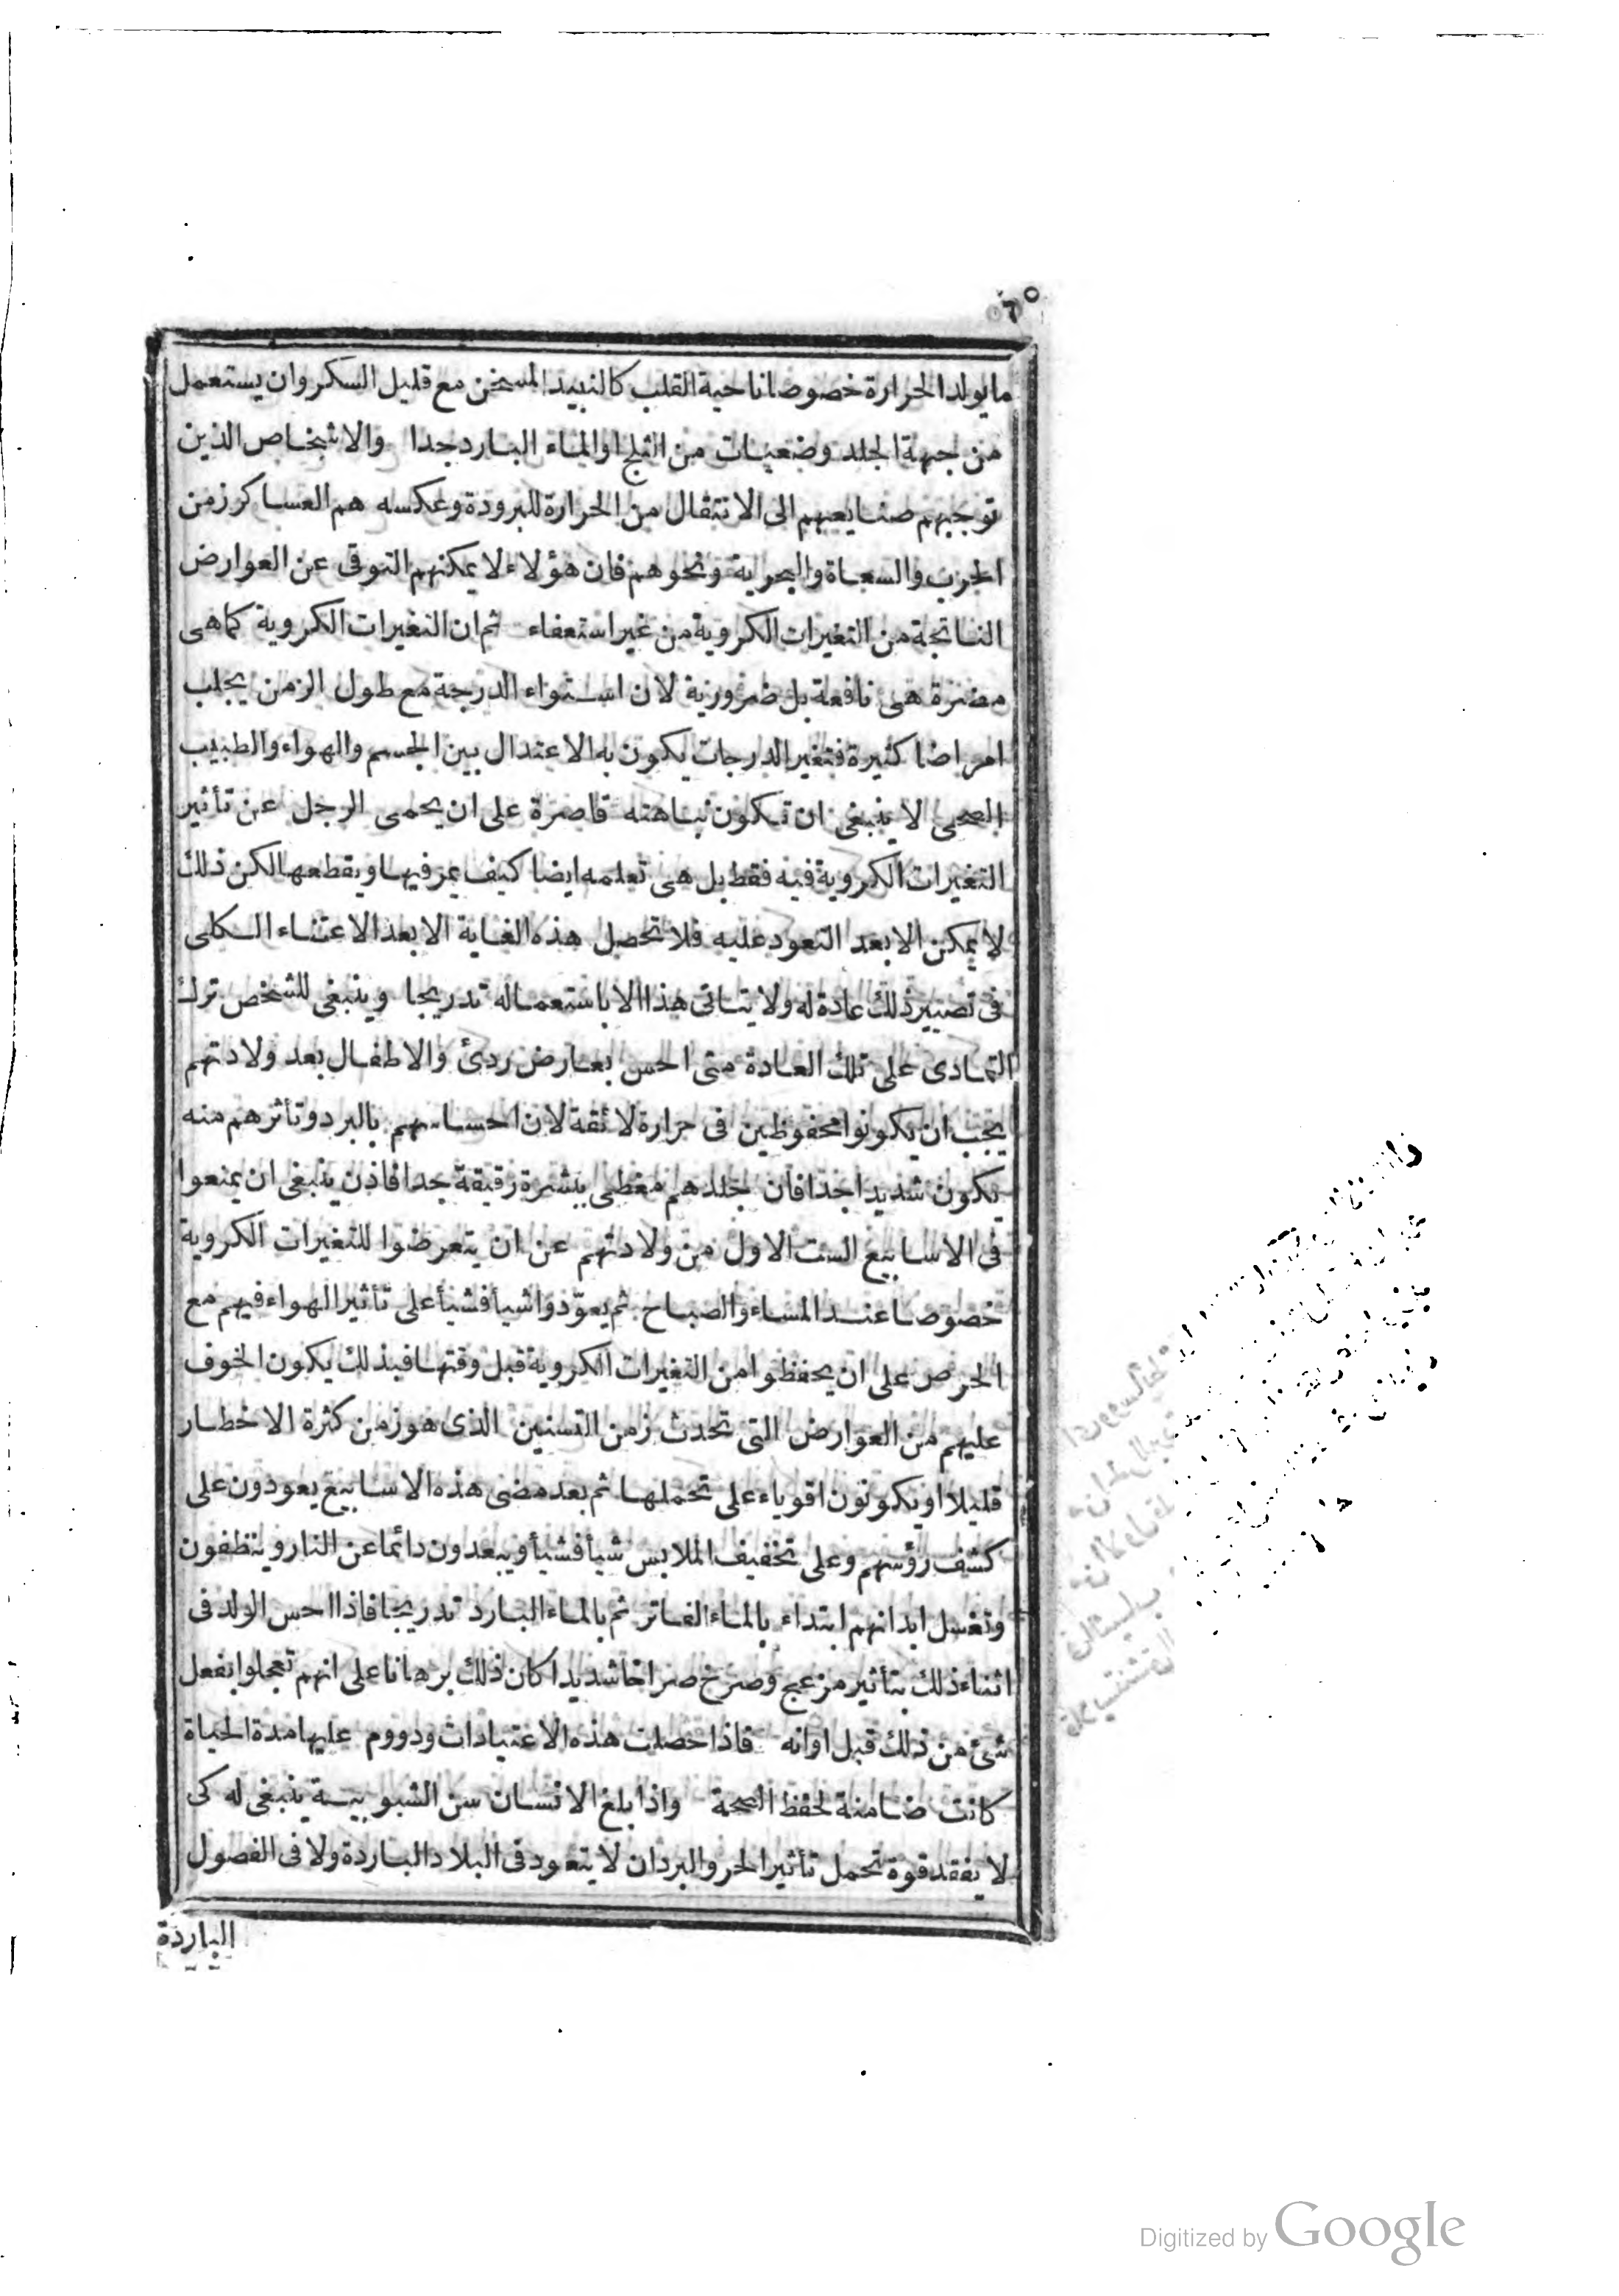 ٥٦
مايولد الحرارة خصوصا ناحية القلب كالنبيد المسخن مع قليل السكر وان يستعمل
من جهة الجلد وضعيات من الثلج او الماء البارد جدا والاشخاص الذين
توجبهم صنايعهم الى الانتقال من الحرارة للبرودة وعكسه هم العساكر زمن
الحرب والسعاة والبحرية ونحوهم فان هؤلاء لا يمكنهم التوقى عن العوارض
الناتجة من التغيرات الكروية من غير استعفاء ثم ان التغيرات الكروية كما هى
مضرة هى نافعة بل ضرورية لان استواء الدرجة مع طول الزمن يجلب
امراضا كثيرة فتغير الدرجات يكون به الاعتدال بين الجسم والهواء والطبيب
الصحى لا ينبغى ان تكون نباهته قاصرة على ان يحمى الرجل عن تأثير
التغيرات الكروية فيه فقط بل هى تعلمه ايضا كيف يمر فيها ويقطعها لكن ذلك
لا يمكن الا بعد التعود عليه فلا تحصل هذه الغاية الا بعد الاعتناء الكلى
فى تصيير ذلك عادة له ولا يتاتى هذا الا باستعماله تدريجا وينبغى للشخص ترك
التمادى على تلك العادة متى احس بعارض ردئ والاطفال بعد ولادتهم
يجب ان يكونوا محفوظين فى حرارة لائقة لان احساسهم بالبرد وتأثرهم منه
يكون شديدا جدا فان جلدهم مغطى ببشرة رقيقة جدا فاذن ينبغى ان يمنعوا
فى الاسابيع الست الاول من ولادتهم عن ان يتعرضوا للتغيرات الكروية
خصوصا عند المساء والصباح ثم يعوّدوا شيأ فشيأ على تأثير الهواء فيهم مع
الحرص على ان يحفظوا من التغيرات الكروية قبل وقتها فبذلك يكون الخوف
عليهم من العوارض التى تحدث زمن التسنين الذى هو زمن كثرة الاخطار
قليلا او يكونون اقوياء على تحملها ثم بعد مضى هذه الاسابيع يعودون على
كشف رؤسهم وعلى تخفيف الملابس شيأ فشيأ ويبعدون دائما عن النار وينظفون
وتغسل ابدانهم ابتداء بالماء الفاتر ثم بالماء البارد تدريجا فاذا احس الولد فى
اثناء ذلك بتأثير مزعج وصرخ صراخا شديدا كان ذلك برهانا على انهم تعجلوا بفعل
شئ من ذلك قبل اوانه فاذا حصلت هذه الاعتيادات ودووم عليها مدة الحياة
كانت ضامنة لحفظ الصحة واذا بلغ الانسان سن الشبوبية ينبغى له كى
لا يفقد قوة تحمل تأثير الحر والبرد ان لا يتعود فى البلاد الباردة ولا فى الفصول
الباردة
Digitized by Google